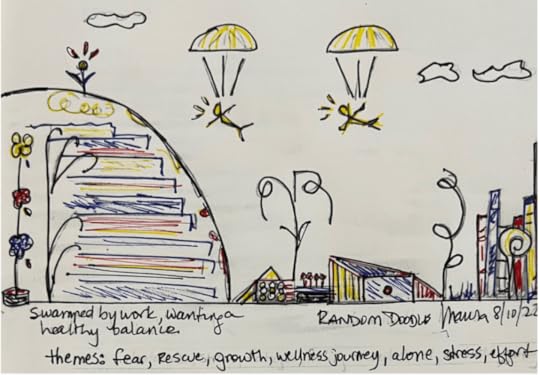 Swamped by work, wanting a
healthy balance.
RANDOM DOODLE 8/10/22
themes: fear, rescue, growth, wellness journey, alone, stress, effort